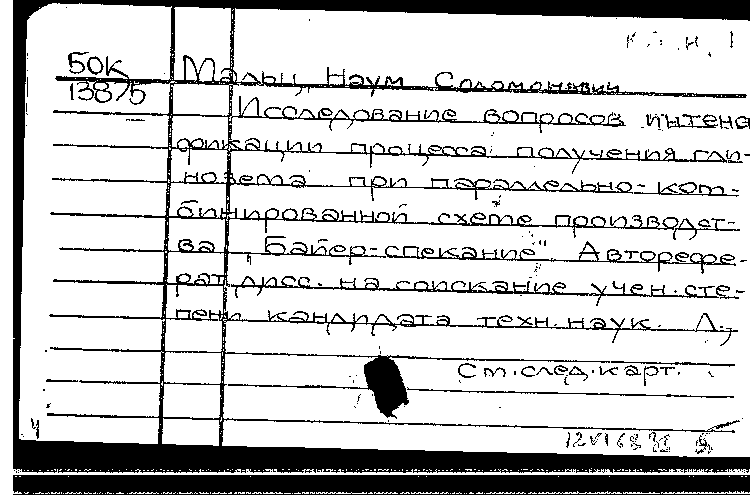 БОК Мальц, Наум Соломонович
13875 Исследование вопросов интенс
фикации процесса получения гли-
нозема при параллельно-ком-
бинированной схеме производст-
ва „Байер-спекание". Авторефе-
рат дисс. на соискание учен. сте-
пени кандидата техн. наук. Л.,
См. след. карт.
12 VI 68